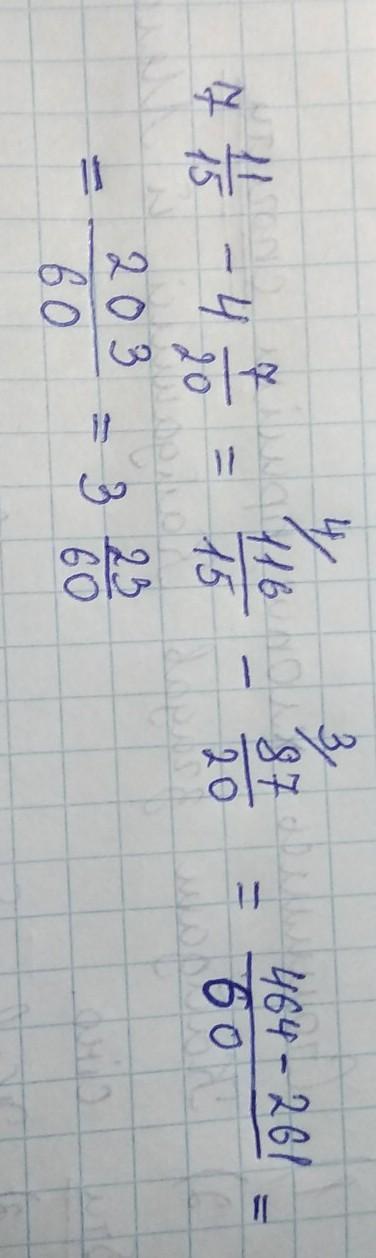 7 11/15 - 4 7/20 = 4/ 116/15 - 3/ 87/20 = 464-261/60 =
= 203/60 = 3 23/60